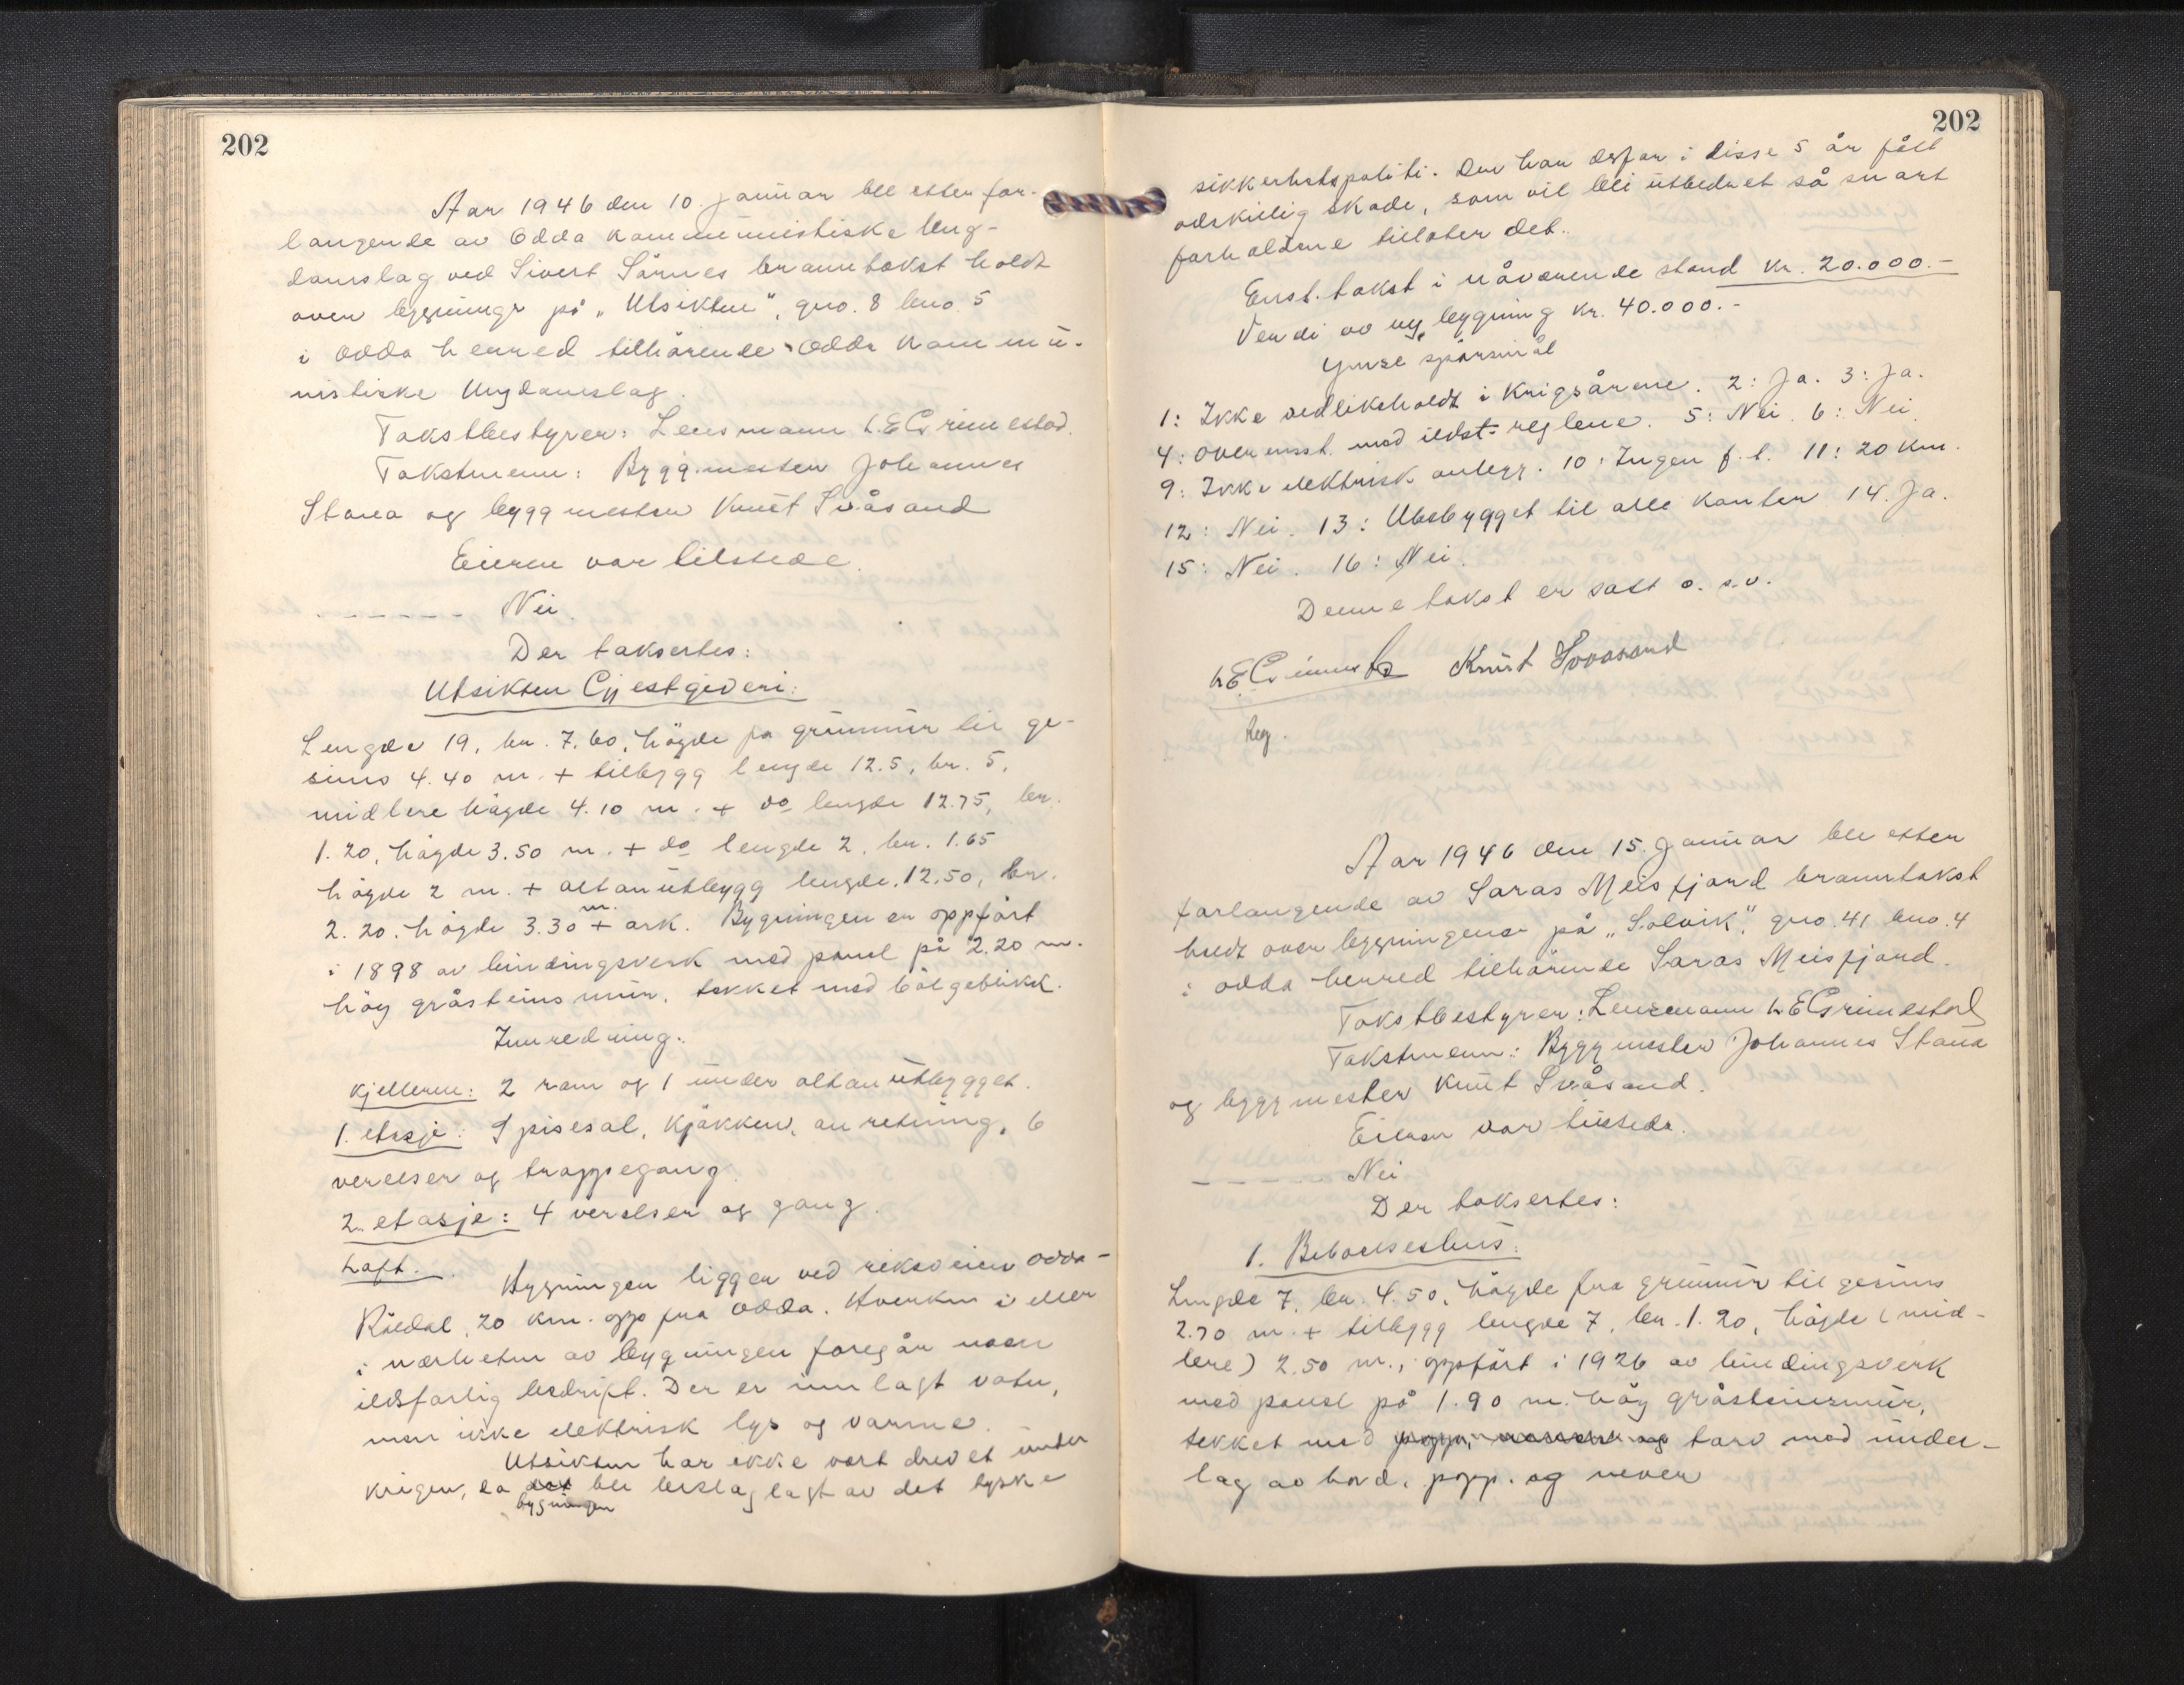 202
Aar 1946 den 10. januar ble etter for-
langende av Odda kommunistiske Ung-
domslag ved Sivert Sørnes branntakst holdt
over bygninge på „Utsikten", gno. 8 bno. 5
i Odda herred tilhørende Odda Kommu-
nistiske Ungdomslag.
Takstbestyrer: Lensmann L.E Grimestad.
Takstmenn: Byggmester Johannes
Stana og byggmester Knut Svåsand
Eieren var tilstede.
- - - - - - Nei.
Der taksertes:
Utsikten Gjestgiveri:
Lengde 19, br. 7.60, høgde fra grunnmur til ge-
sims 4.40 m. + tilbygg lengde 12.5, br. 5,
midlere høgde 4.10 m. + do lengde 12.75, br.
1.20, høgde 3.50 m. + do lengde 2, br. 1.65
høgde 2 m. + altanutbygg lengde 12.50, br.
2.20. høgde 3.30 m. + ark. Bygningen er oppført
i 1898 av bindingsverk med panel på 2.20 m.
høg gråsteinsmur, tekket med bølgeblikk.
Innredning:
Kjelleren: 2 rom og 1 under altanutbygget.
1. etasje: Spisesal, kjøkken, anretning, 6
verelser og trappegang.
2. etasje: 4 verelser og gang.
Loft. Bygningen ligger ved riksveien Odda-
Röldal, 20 km. opp fra Odda. Hverken i eller
i nærheten av bygningen foregår noen
ildsfarlig bedrift. Der er innlagt vatn,
men ikke elektrisk lys og varme.
Utsikten har ikke vært drevet under
krigen, da det ble beslaglagt av det tyske
bygningen
202
sikkerhetspoliti. Den har derfor i disse 5 år fått
adskillig skade, som vil bli utbedret så snart
forholdene tillater det.
Enst. takst i nåværende stand kr. 20.000.-
Verdi av ny bygning kr. 40.000.-
Ymse spørsmål
1: Ikke vedlikeholdt i krigsårene. 2: Ja. 3: Ja.
4: Overensst. med ildst.reglene. 5: Nei. 6: Nei.
9: Ikke elektrisk anlegg. 10: Ingen f.l. 11: 20 km.
12: Nei. 13: Utebygget til alle kanter 14. Ja.
15: Nei. 16: Nei.
Denne takst er satt o.s.v.
L E Grimestad Knut Svaasand
Reg.
Aar 1946 den 15. januar ble etter
forlangende av Saras Meisfjord branntakst
holdt over bygningene på „Solvik", gno. 41 bno. 4
i Odda herred tilhørende Saras Meisfjord.
Takstbestyrer: Lensmann L E Grimestad
Takstmenn: Byggmester Johannes Stana
og byggmester Knut Svåsand.
Eieren var tilstede.
- - - - - Nei
Der taksertes:
1. Beboelseshus:
Lengde 7, br. 4.50, høgde fra grunnmur til gesims
2.70 m. + tilbygg lengde 7, br. 1.20, høgde (mid-
lere) 2.50 m., oppført i 1926 av bindingsverk
med panel på 1.90 m. høg gråsteinsmur,
tekket med torv med under-
lag av bord, papp. og never